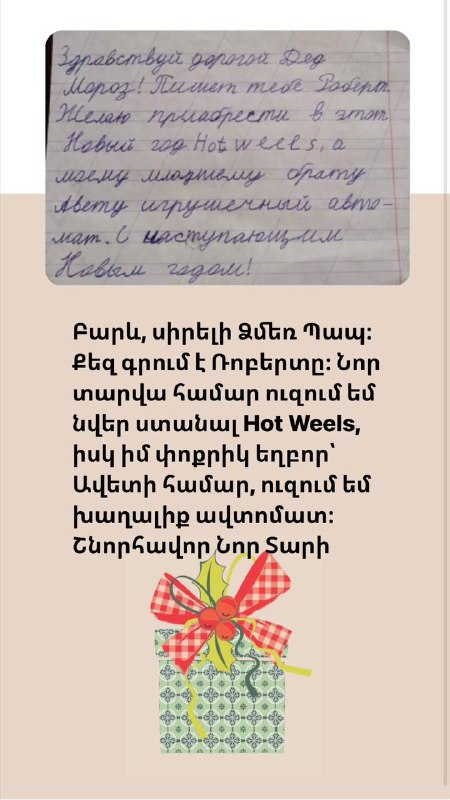 Здравствуй дорогой Дед
Мороз! Пишет тебе Роберт.
Желаю приабрести в этот
Новый год Hot weels, а
моему младшему брату
Авету игрушечный авто-
мат. С наступающим
Новым годом!
Բարև, սիրելի Ձմեռ Պապ:
Քեզ գրում է Ռոբերտը: Նոր
տարվա համար ուզում եմ
նվեր ստանալ Hot Weels,
իսկ իմ փոքրիկ եղբոր՝
Ավետի համար, ուզում եմ
խաղալիք ավտոմատ:
Շնորհավոր Նոր Տարի